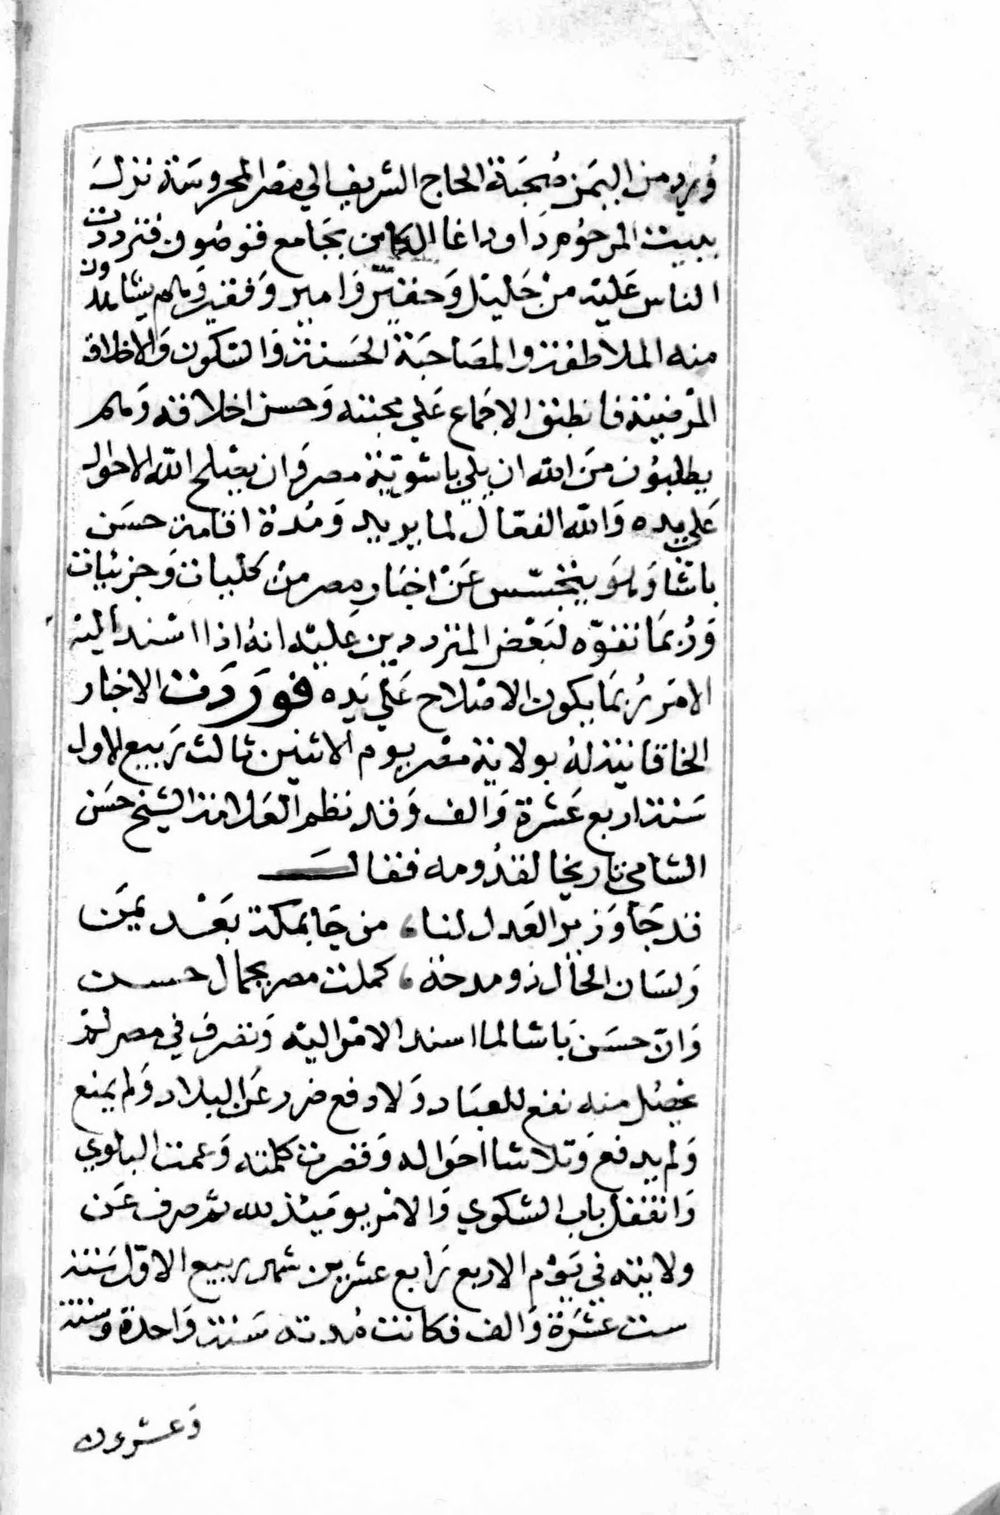 ويريد من اليمن صحبة الحاج الشريف الي مصر المحروسة نزل
ببيت المرحوم داود اغا الكاين بجامع قوصون فترددت
الناس عليه من جليل وحقير وامير وفقير وهم يشاهدون
منه الملاطفة والمصاحبة الحسنة والسكون والاخلاق
المرضية فانطبق الاجماع علي محبته وحسن اخلاقه وهم
يطلبون من الله ان يلي باشوية مصر وان يصلح الله الاحوال
علي يده والله الفعال لما يريد ومدة اقامة حسن
باشا وهو يتجسس عن اخبار مصر من كليات وجزئيات
وربما تفوه لبعض المترددين عليه انه اذا اسند اليه
الامر ربما يكون الاصلاح علي يده فوردت الاخبار
الخاقانية له بولاية مصر يوم الاثنين ثالث ربيع الاول
سنة اربع عشرة والف وقد نظم العلامة الشيخ حسن
الشامي تاريخا لقدومه فقال
قد جا وزير العدل لنا ، من جا بمكة بعد يمن
ولسان الحال ذو مدحة ، كملت مصر بجمال حسن
وان حسن باشا لما اسند الامر اليه وتصرف في مصر لم
يحصل منه نفع للعباد ولا دفع ضرر عن البلاد ولم يمنع
ولم يدفع وتلاشا احواله وقصرت كلمته وعمت البلوي
وانقفل باب الشكوي والامر يوميذ لله ثم صرف عن
ولايته في يوم الاربع رابع عشرين شهر ربيع الاول سنة
ست عشرة والف فكانت مدته سنة واحدة وستة
وعشرون